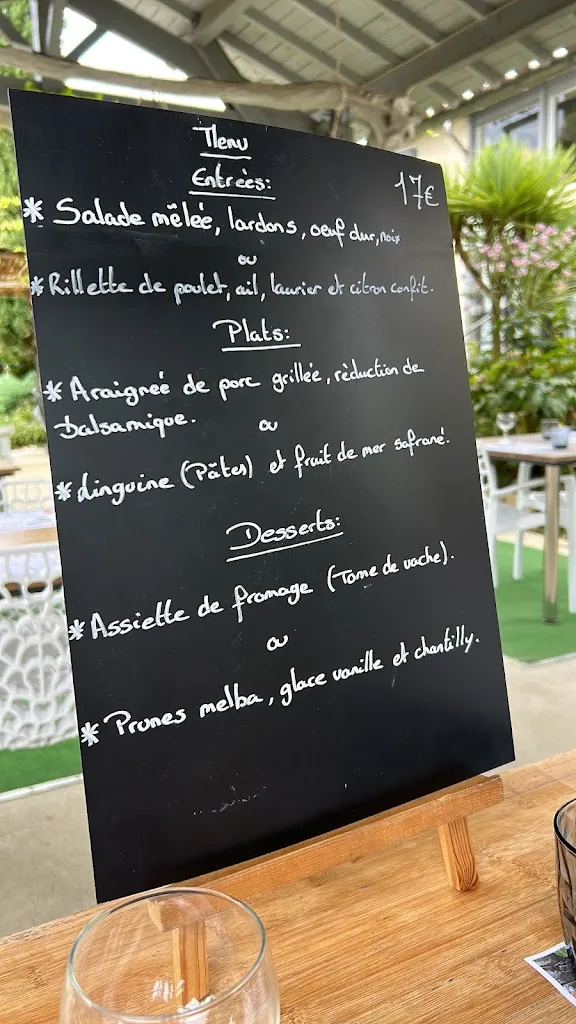 Menu
Entrées:
17€
* Salade mêlée, lardons, oeuf dur, noix
ou
* Rillette de poulet, ail, laurier et citron confit.
Plats:
* Araignée de porc grillée, rèduction de
balsamique.
ou
* Linguine (Pâtes) et fruit de mer safrané.
Desserts:
* Assiette de fromage (Tome de vache).
ou
* Prunes melba, glace vanille et chantilly.